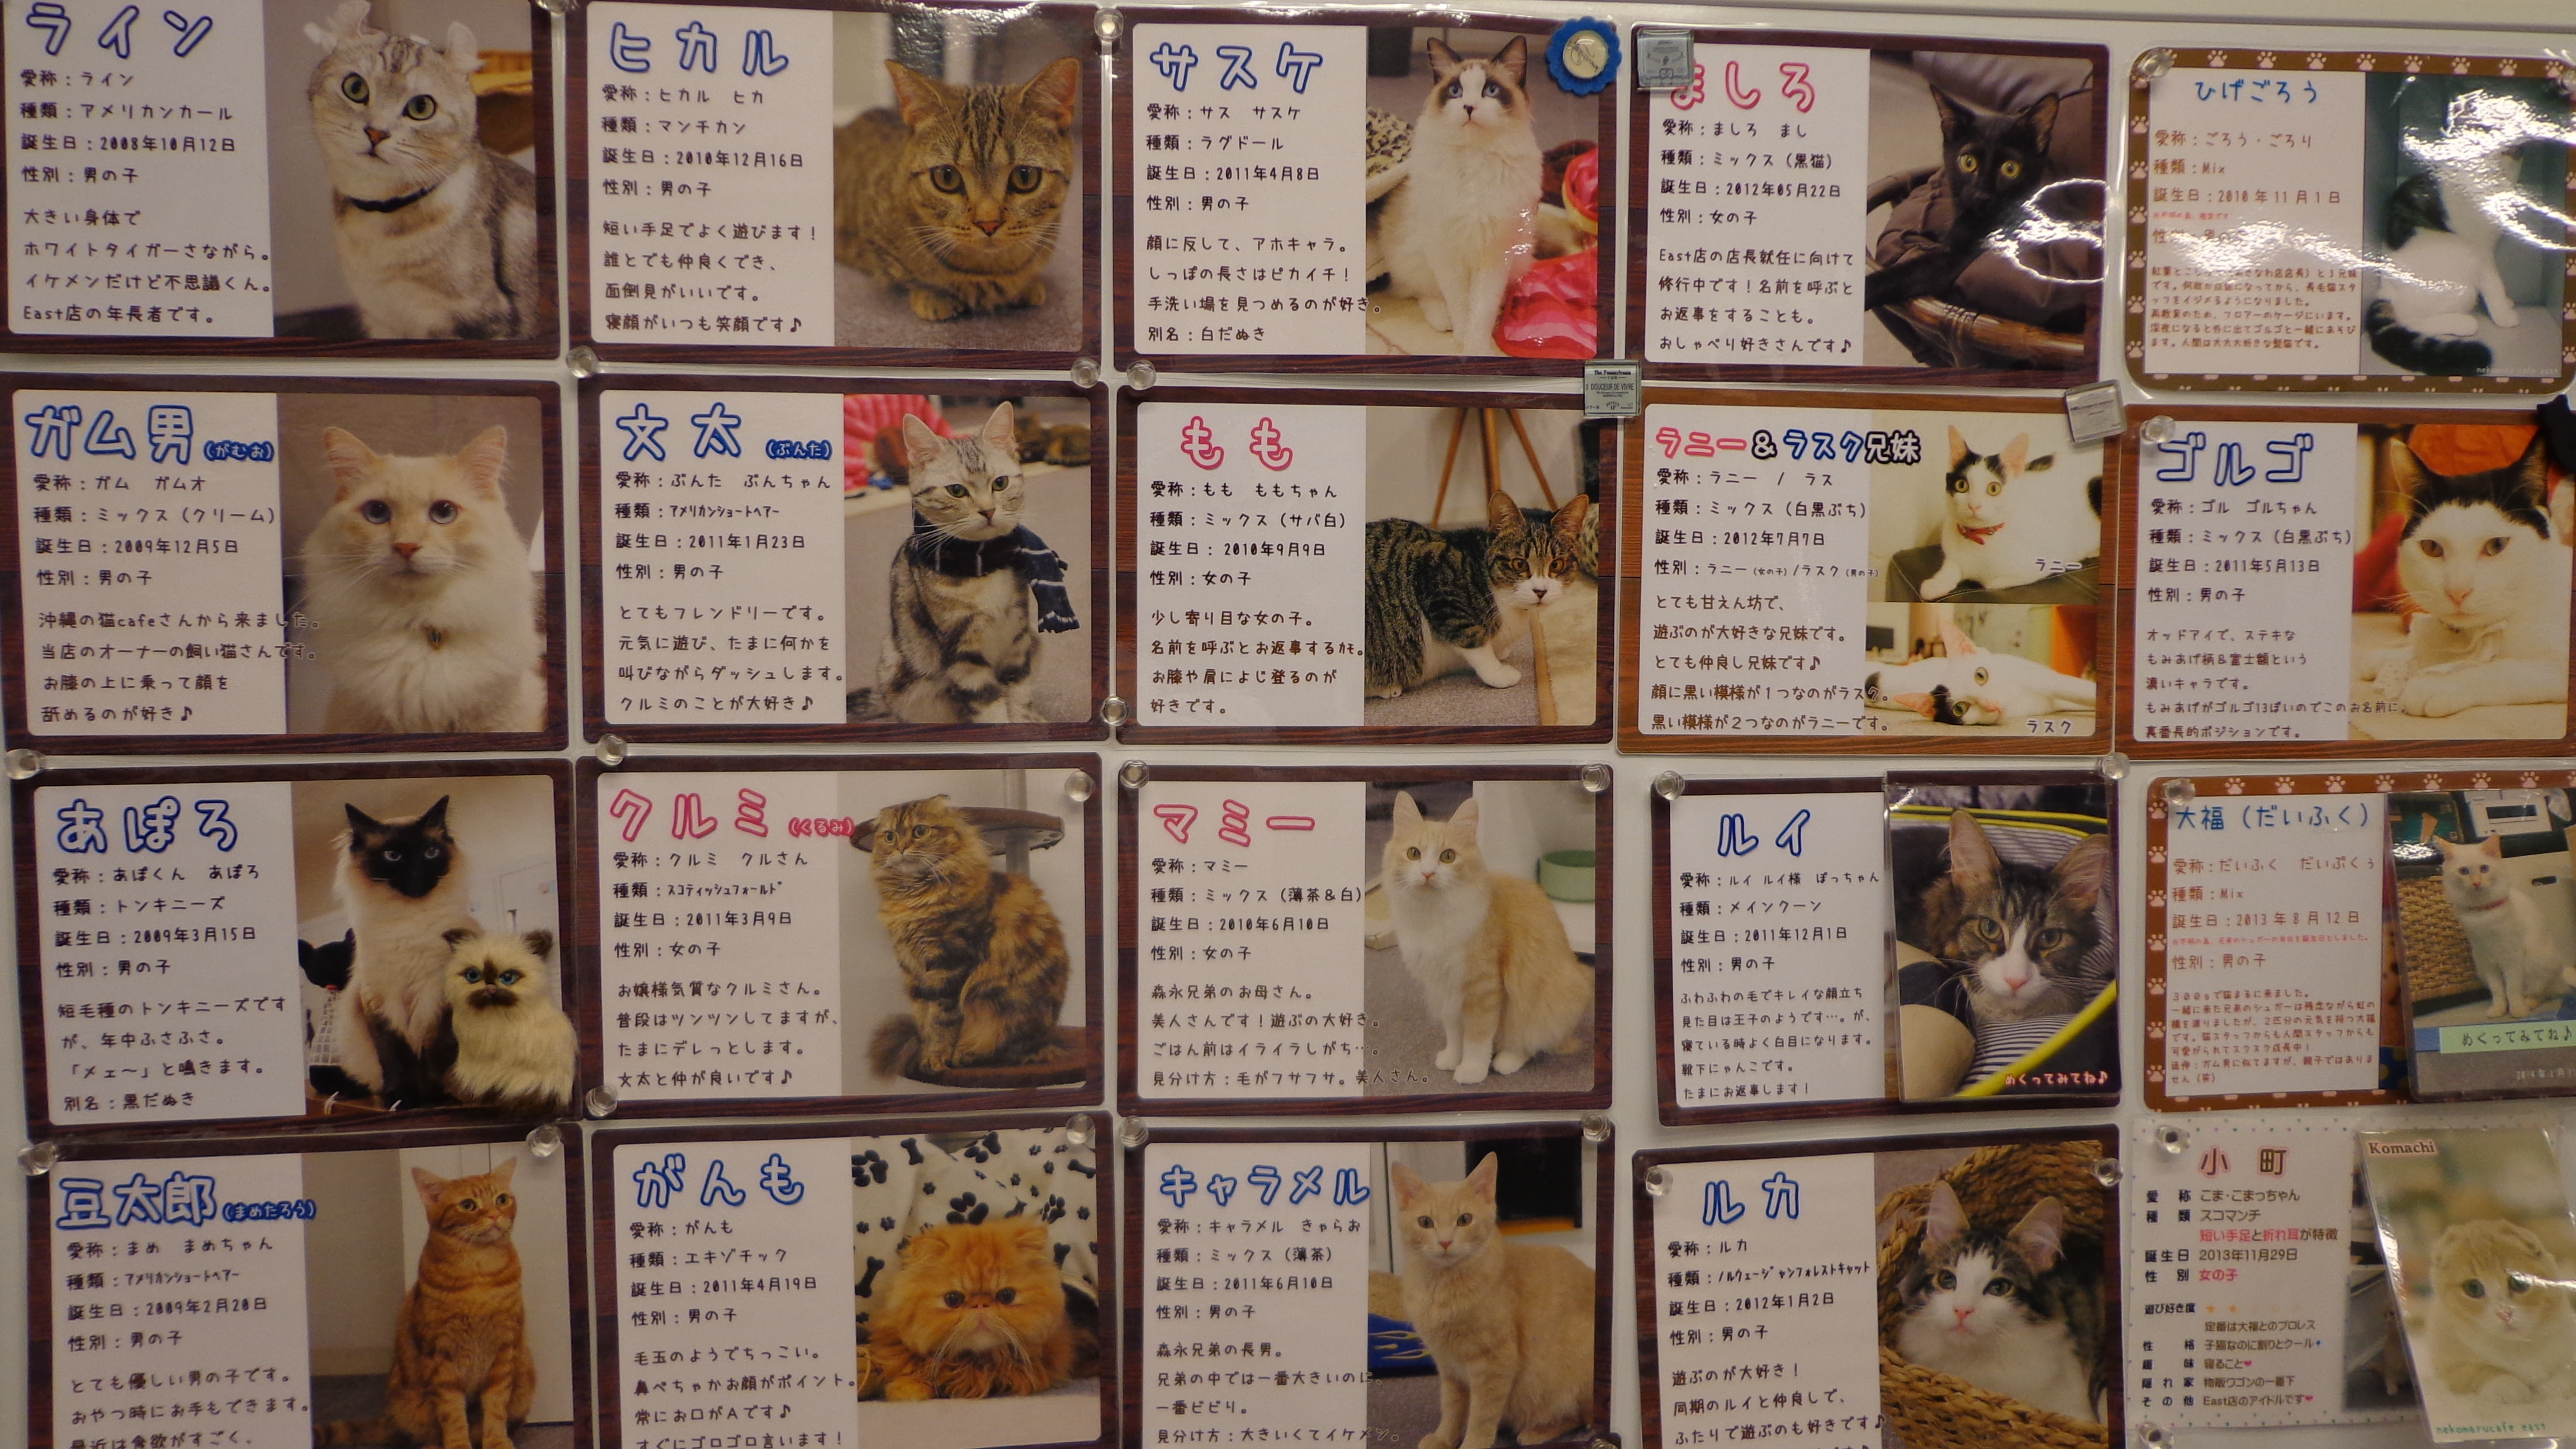 ライン
愛称：ライン
種類：アメリカンカール
誕生日：2008年10月12日
性別：男の子
大きい身体で
ホワイトタイガーさながら。
イケメンだけど不思議くん。
East店の年長者です。
ヒカル
愛称：ヒカル ヒカ
種類：マンチカン
誕生日：2010年12月16日
性別：男の子
短い手足でよく遊びます！
誰とでも仲良くでき、
面倒見がいいです。
寝顔がいつも笑顔です♪
サスケ
愛称：サス サスケ
種類：ラグドール
誕生日：2011年4月8日
性別：男の子
顔に反して、アホキャラ。
しっぽの長さはピカイチ！
手洗い場を見つめるのが好き。
別名：白だぬき
ましろ
愛称：ましろ まし
種類：ミックス（黒猫）
誕生日：2012年05月22日
性別：女の子
East店の店長就任に向けて
修行中です！名前を呼ぶと
お返事をすることも。
おしゃべり好きさんです♪
ひげごろう
愛称：ごろう・ごろり
種類：Mix
誕生日：2010年11月1日
です。
長毛猫スタ
ッフをイジメるようになりました。
フロアーのケージにいます。
深夜になると外に出てゴルゴと一緒にあそび
ます。人間は大大大好きな髭猫です。
nekomaru cafe east
ガム男（がむお）
愛称：ガム ガムオ
種類：ミックス（クリーム）
誕生日：2009年12月5日
性別：男の子
沖縄の猫cafeさんから来ました。
当店のオーナーの飼い猫さんです。
お膝の上に乗って顔を
舐めるのが好き♪
文太（ぶんた）
愛称：ぶんた ぶんちゃん
種類：ｱﾒﾘｶﾝｼｮｰﾄﾍｱｰ
誕生日：2011年1月23日
性別：男の子
とてもフレンドリーです。
元気に遊び、たまに何かを
叫びながらダッシュします。
クルミのことが大好き♪
もも
愛称：もも ももちゃん
種類：ミックス（サバ白）
誕生日：2010年9月9日
性別：女の子
少し寄り目な女の子。
名前を呼ぶとお返事するカモ。
お膝や肩によじ登るのが
好きです。
DOUCEUR DE VIVRE
ラニー＆ラスク兄妹
愛称：ラニー / ラス
種類：ミックス（白黒ぶち）
誕生日：2012年7月7日
性別：ラニー（女の子）/ラスク（男の子）
とても甘えん坊で、
遊ぶのが大好きな兄妹です。
とても仲良し兄妹です♪
顔に黒い模様が1つなのがラスク。
黒い模様が2つなのがラニーです。
ラニー
ラスク
ゴルゴ
愛称：ゴル ゴルちゃん
種類：ミックス（白黒ぶち）
誕生日：2011年5月13日
性別：男の子
オッドアイで、ステキな
もみあげ柄＆富士額という
濃いキャラです。
もみあげがゴルゴ13ぽいのでこのお名前に。
裏番長的ポジションです。
あぽろ
愛称：あぽくん あぽろ
種類：トンキニーズ
誕生日：2009年3月15日
性別：男の子
短毛種のトンキニーズです
が、年中ふさふさ。
「メェ～」と鳴きます。
別名：黒だぬき
クルミ（くるみ）
愛称：クルミ クルさん
種類：ｽｺﾃｨｯｼｭﾌｫｰﾙﾄﾞ
誕生日：2011年3月9日
性別：女の子
お嬢様気質なクルミさん。
普段はツンツンしてますが、
たまにデレっとします。
文太と仲が良いです♪
マミー
愛称：マミー
種類：ミックス（薄茶＆白）
誕生日：2010年6月10日
性別：女の子
森永兄弟のお母さん。
美人さんです！遊ぶの大好き。
ごはん前はイライラしがち…。
見分け方：毛がフサフサ。美人さん。
ルイ
愛称：ルイ ルイ様 ぼっちゃん
種類：メインクーン
誕生日：2011年12月1日
性別：男の子
ふわふわの毛でキレイな顔立ち
見た目は王子のようです…。が、
寝ている時よく白目になります。
靴下にゃんこです。
たまにお返事します！
めくってみてね♪
大福（だいふく）
愛称：だいふく だいぷくぅ
種類：Mix
誕生日：2013年8月12日
性別：男の子
300gで猫まるに来ました。
一緒に来た兄弟のシュガーは残念ながら虹の
橋を渡りましたが、2匹分の元気を持つ大福
です。猫スタッフからも人間スタッフからも
可愛がられてスクスク成長中！
追伸：ガム男に似てますが、親子ではありま
せん（笑）
めくってみてね♪
豆太郎（まめたろう）
愛称：まめ まめちゃん
種類：ｱﾒﾘｶﾝｼｮｰﾄﾍｱｰ
誕生日：2009年2月20日
性別：男の子
とても優しい男の子です。
おやつ時にお手もできます。
最近は食欲がすごく、
がんも
愛称：がんも
種類：エキゾチック
誕生日：2011年4月19日
性別：男の子
毛玉のようでちっこい。
鼻ぺちゃかお顔がポイント。
常にお口がAです♪
すぐにゴロゴロ言います！
キャラメル
愛称：キャラメル きゃらお
種類：ミックス（薄茶）
誕生日：2011年6月10日
性別：男の子
森永兄弟の長男。
兄弟の中では一番大きいのに、
一番ビビり。
見分け方：大きいくてイケメン。
ルカ
愛称：ルカ
種類：ﾉﾙｳｪｰｼﾞｬﾝﾌｫﾚｽﾄｷｬｯﾄ
誕生日：2012年1月2日
性別：男の子
遊ぶのが大好き！
同期のルイと仲良しで、
ふたりで遊ぶのも好きです♪
小町
愛称 こま・こまっちゃん
種類 スコマンチ
短い手足と折れ耳が特徴
誕生日 2013年11月29日
性別 女の子
遊び好き度
定番は大福とのプロレス
性格 子猫なのに割りとクール
趣味 寝ること♥
隠れ家 物販ワゴンの一番下
その他 East店のアイドルです♥
Komachi
nekomarucafe east